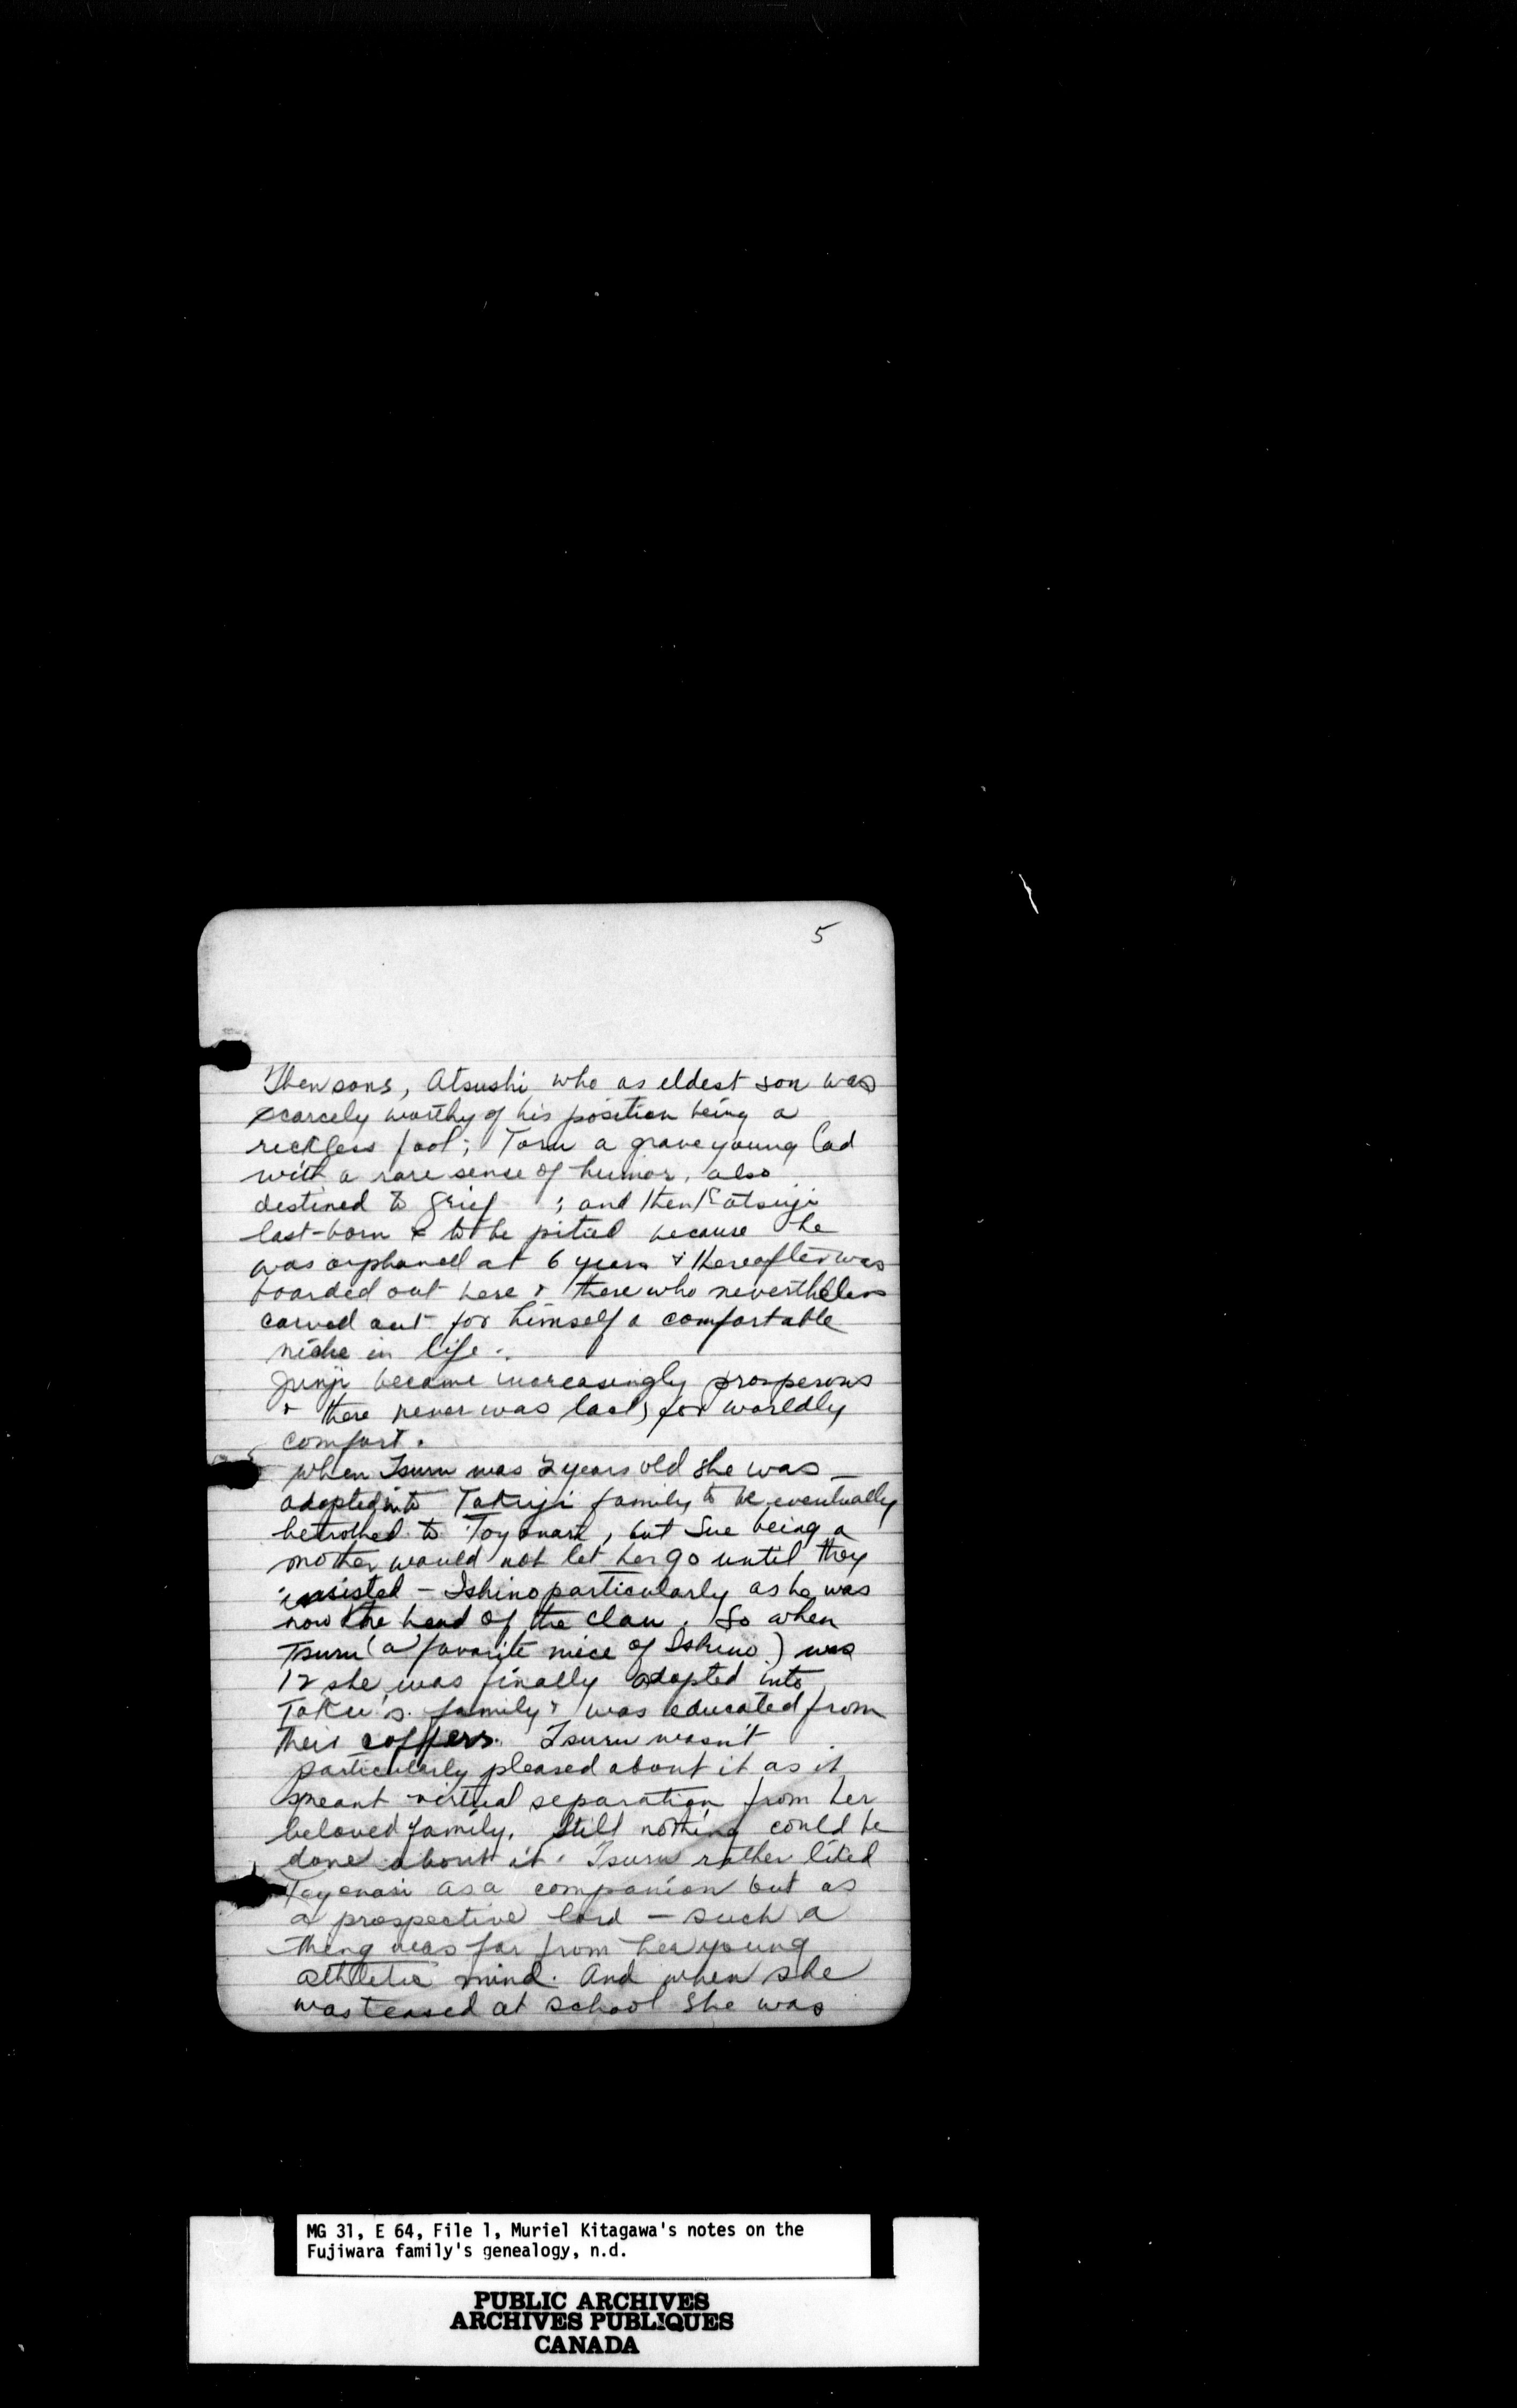 5
Then sons, Atsushi who as eldest son was
scarcely worthy of his position being a
reckless fool; Toru a grave young lad
with a rare sense of humor, also
destined to grief ; and then Katsuji
last-born & to be pitied because he
was orphaned at 6 years & thereafter was
boarded out here & there who neverthless
carved out for himself a comfortable
niche in life.
Junji became increasingly prosperous
& there never was lack for worldly
comfort.
When Tsuru was 2 years old she was
adopted into Takuji family to be eventually
betrothed to Toyonari, but Sue being a
mother would not let her go until they
insisted - Ishino particularly as he was
now the head of the clan. So when
Tsuru (a favorite niece of Ishino) was
12 she was finally adopted into
Taku's family & was educated from
their coffers. Tsuru wasn't
particularly pleased about it as it
meant virtual separation from her
beloved family. Still nothing could be
done about it. Tsuru rather liked
Toyonari as a companion but as
a prospective lord - such a
thing was far from her young
athletic mind. And when she
was teased at school she was
MG 31, E 64, File 1, Muriel Kitagawa's notes on the
Fujiwara family's genealogy, n.d.
PUBLIC ARCHIVES
ARCHIVES PUBLIQUES
CANADA